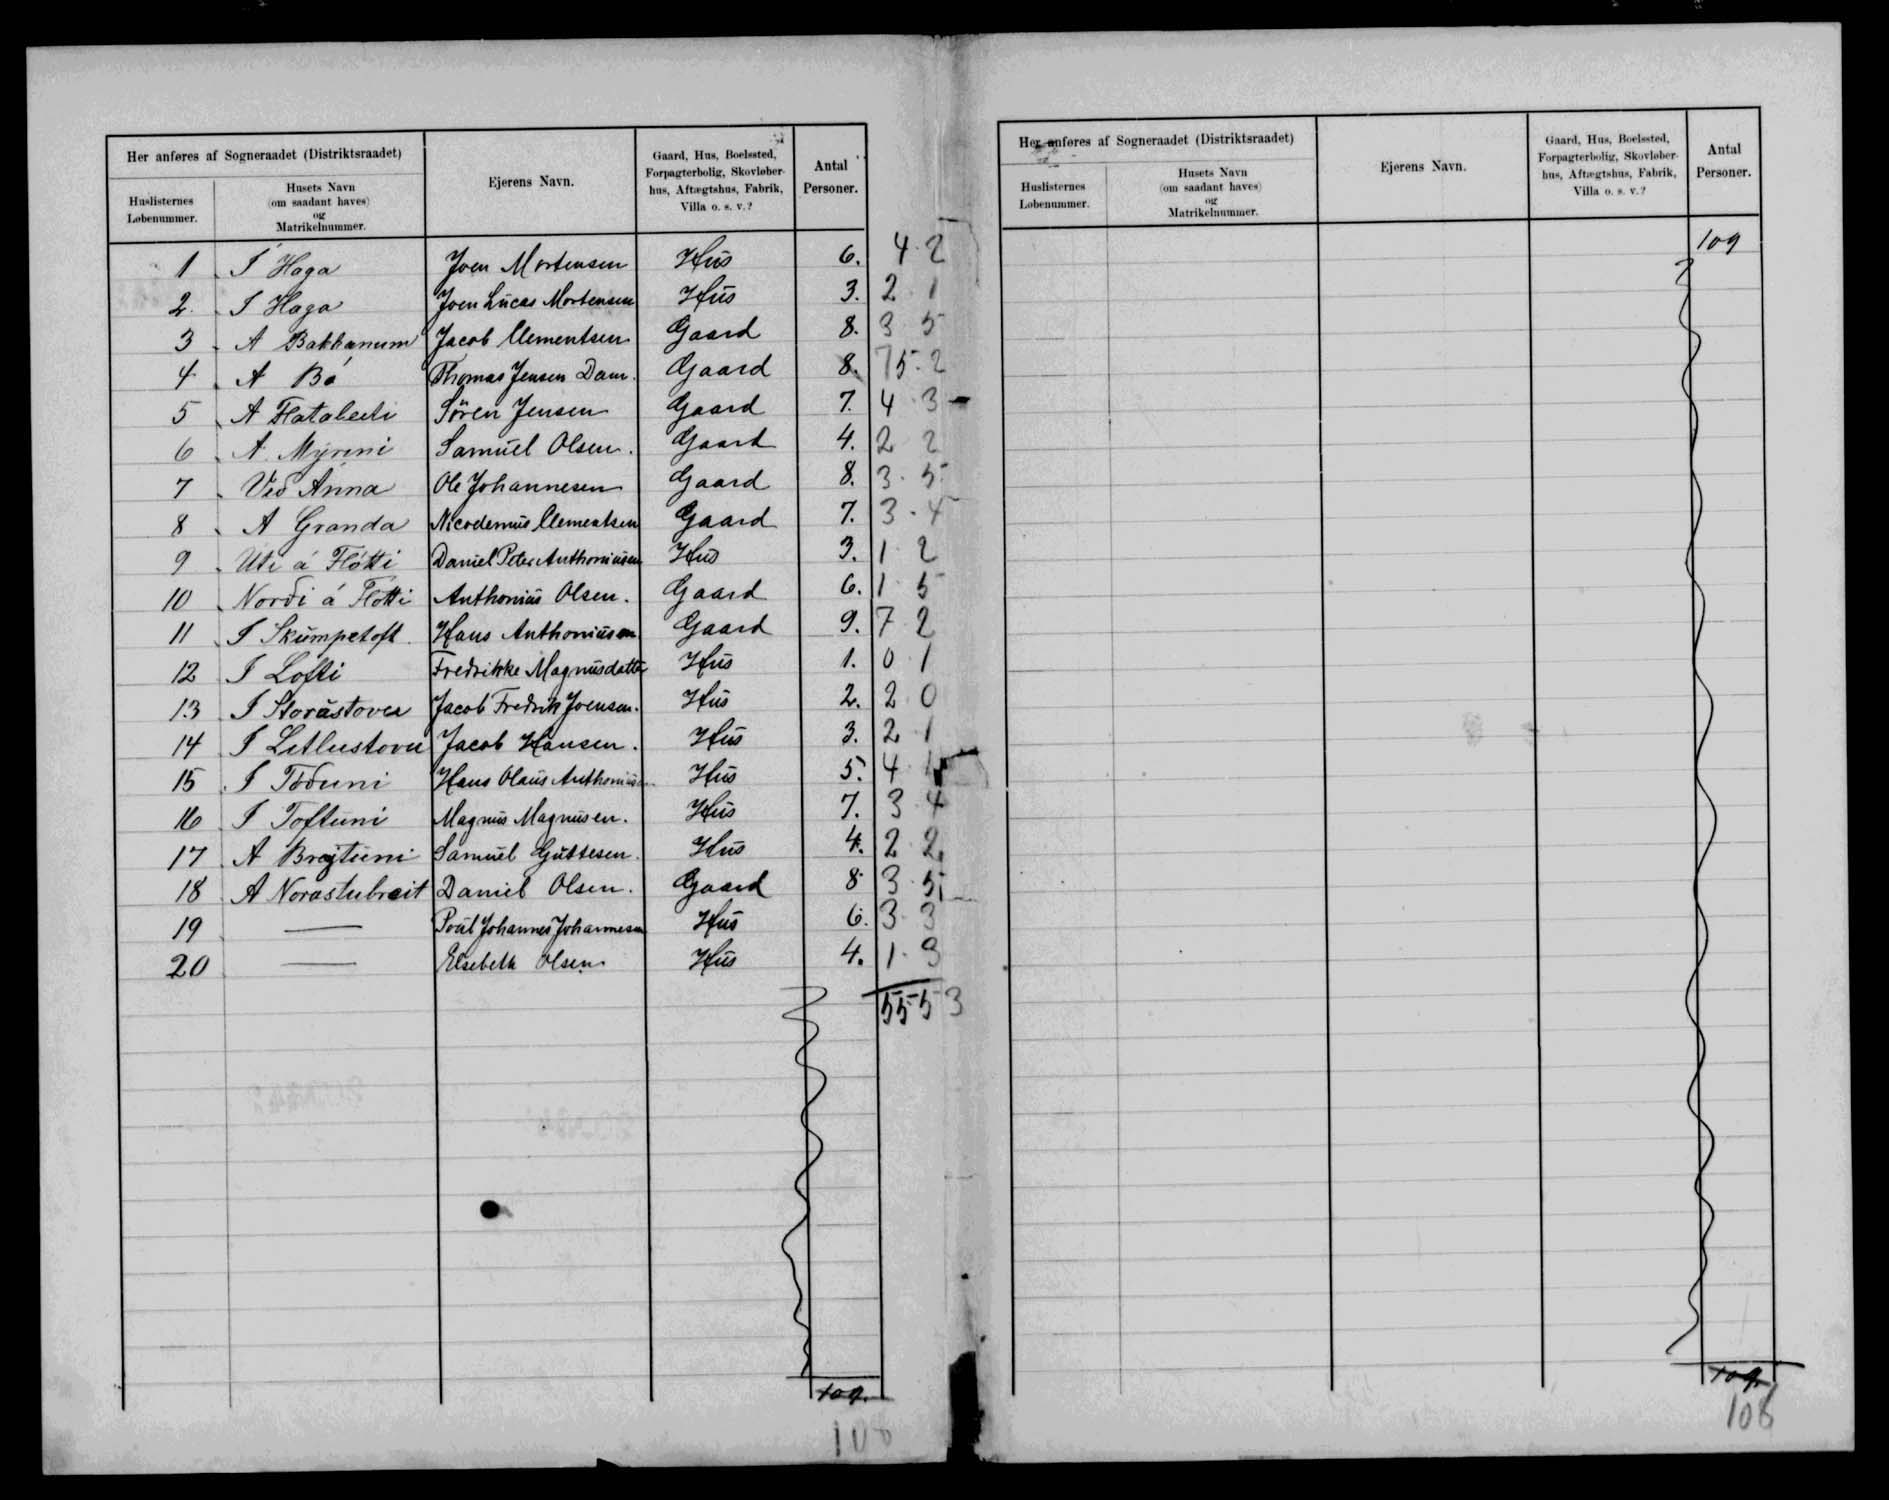 Her anføres af Sogneraadet (Distriktsraadet)
Huslisternes Løbenummer.
Husets Navn (om saadant haves) og Matrikelnummer.
Ejerens Navn.
Gaard, Hus, Boelssted, Forpagterbolig, Skovløberhus, Aftægtshus, Fabrik, Villa o. s. v.?
Antal Personer.
1 Í Haga Joen Mortensen Hus 6. 4 2
2. I Haga Joen Lucas Mortensen Hus 3. 2 1
3 A Bakkanum Jacob Clementsen Gaard 8. 3 5
4 A Bö Thomas Jensen Dam. Gaard 8. 5 2
5 A Flatabeiti Sören Jensen Gaard 7. 4 3
6 A Mýruni Samuel Olsen. Gaard 4. 2 2
7 Við Ánna Ole Johannesen Gaard 8. 3 5
8 A Granda Nicodemus Clementsen Gaard 7. 3 4
9 Uti á Flötti Daniel Peter Anthoniusen Hus 3. 1 2
10 Norði á Flötti Anthonius Olsen. Gaard 6. 1 5
11 I Skumpetoft. Hans Anthoniusen Gaard 9. 7 2
12 I Lofti Fredrikke Magnusdatter Hus 1. 0 1
13 I Storustovu Jacob Fredrik Joensen. Hus 2. 2 0
14 I Litlustovu Jacob Hansen. Hus 3. 2 1
15 I Töðuni Hans Olaus Anthoniusen Hus 5. 4 1
16 I Toftuni Magnus Magnusen. Hus 7. 3 4
17 A Brejtuni Samuel Guttesen. Hus 4. 2 2
18 A Norastubreit Daniel Olsen. Gaard 8 3 5
19 — Poul Johannes Johannesen Hus 6. 3 3
20 — Elsebeth Olsen Hus 4. 1 3
55 53
109.
108
Her anføres af Sogneraadet (Distriktsraadet)
Huslisternes Løbenummer.
Husets Navn (om saadant haves) og Matrikelnummer.
Ejerens Navn.
Gaard, Hus, Boelssted, Forpagterbolig, Skovløberhus, Aftægtshus, Fabrik, Villa o. s. v.?
Antal Personer.
109
109.
108